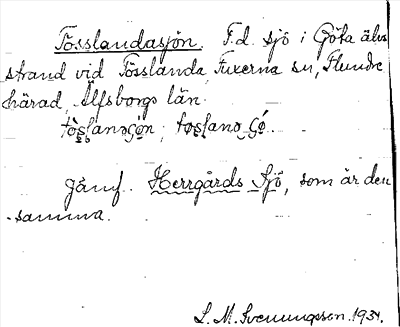 Tösslandasjön. F.d. sjö i Göta älvs
strand vid Tösslanda, Fuxerna sn, Flundre
härad, Älfsborgs län.
Jämf. Herrgårds Sjö, som är den
samma.
L. M. Svenungsson. 1934.